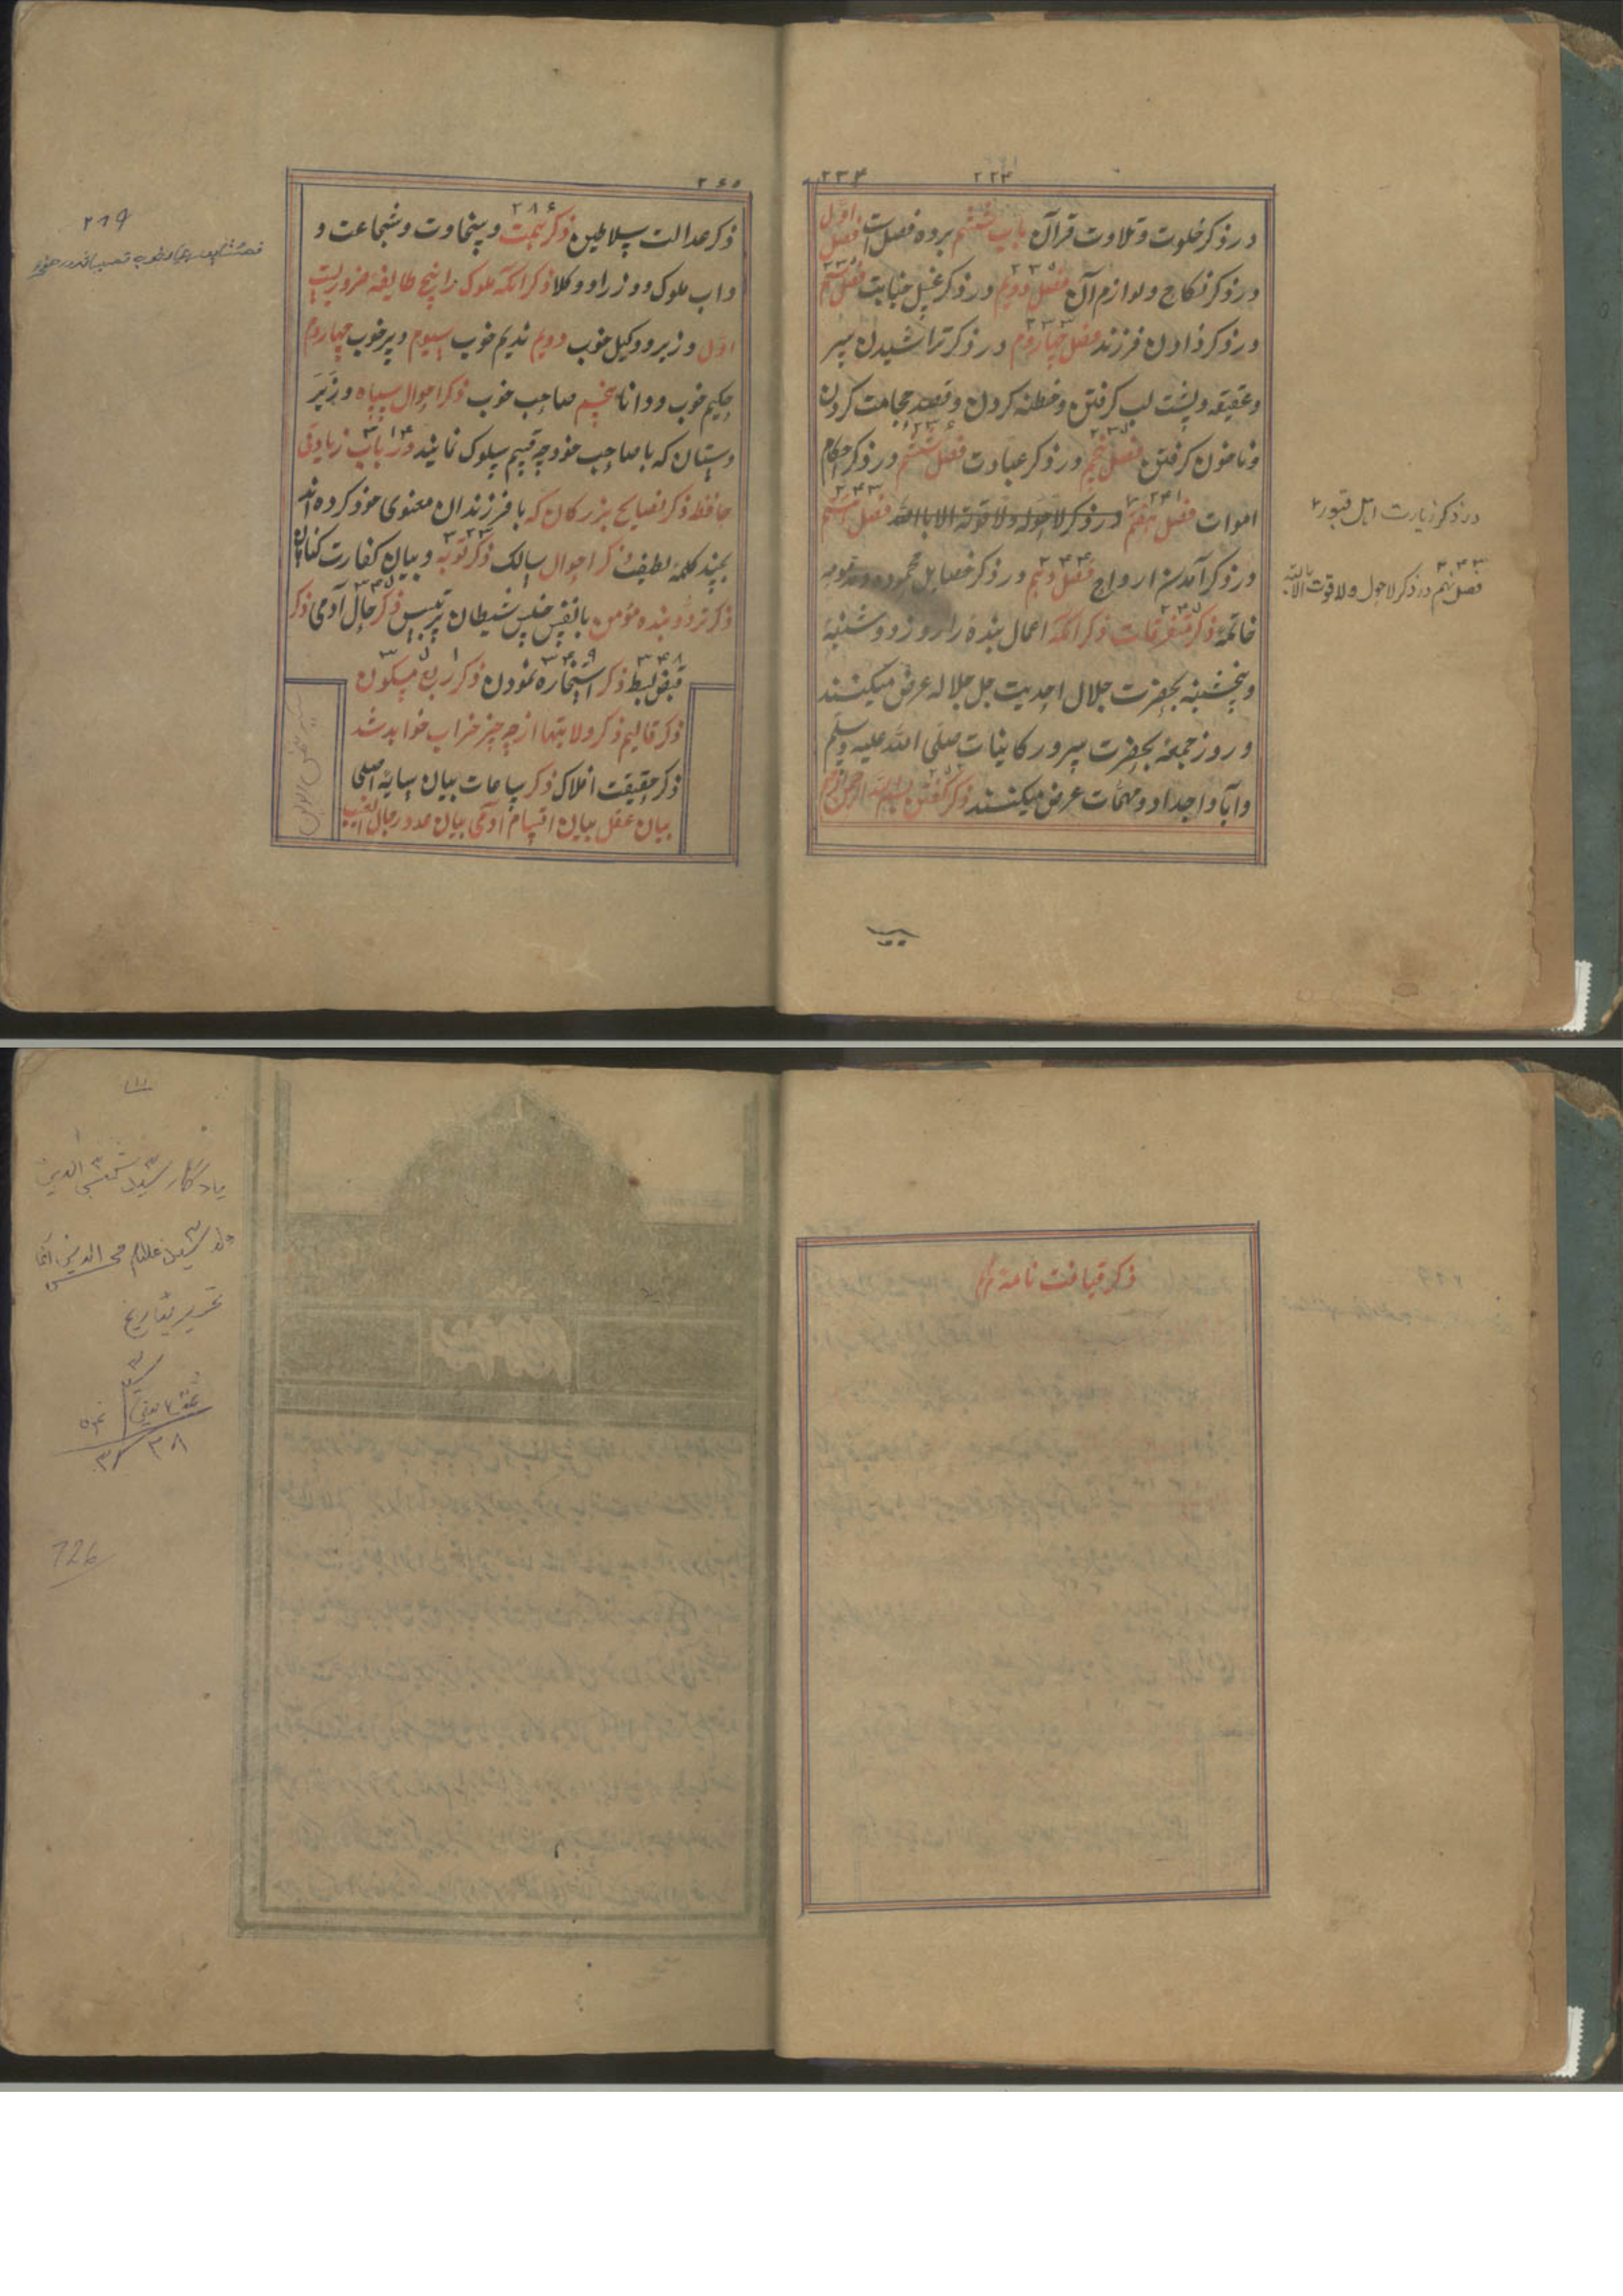 ۲۳۴ ۲۲۴
در ذکر خلوت و تلاوت قرآن باب ششم بر ده فصل است فصل اول
در ذکر نکاح و لوازم آن فصل دویم در ذکر غسل جنابت فصل سیم
در ذکر زادن فرزند فصل چهارم در ذکر تراشیدن سر
و عقیقه و پشت لب کرفتن و خطنه کردن و قصد حجامت کردن
و ناخون کرفتن فصل پنجم در ذکر عبادت فصل ششم در ذکر احکام
اموات فصل هفتم در ذکر لاحول ولا قوة الا بالله فصل هشتم
در ذکر آمدن ارواح فصل دهم در ذکر خصایل محموده و مذمومه
خاتمه ذکر متفرقات ذکر انکه اعمال بنده را روز دوشنبه
و پنجشنبه بحضرت جلال احدیت جل جلاله عرض میکنند
و روز جمعه بحضرت سرور کاینات صلی الله علیه وسلم
و آبا و اجداد و مهمات عرض میکنند ذکر کفتن بسم الله الرحمن الرحیم
در ذکر زیارت اهل قبور
۳۴۳
فصل نهم در ذکر لاحول ولا قوت الا بالله
۲۶۵
۲۸۶
ذکر عدالت سلاطین ذکر همت و سخاوت و شجاعت و
داب ملوک و وزرا و وکلا ذکر انکه ملوک را پنج طایفه ضروریست
اول وزیر و وکیل خوب دویم ندیم خوب سیوم دبیر خوب چهارم
حکیم خوب و دانا پنجم صاحب خوب ذکر احوال سپاه و زیر
دستان که با صاحب خود چه قسم سلوک نمایند در باب زیادتی
حافظه ذکر نصایح بزرکان که با فرزندان معنوی خود کرده اند
بچند کلمه لطیف ذکر احوال سالک ذکر توبه و بیان کفارت کناهان
ذکر تردد بنده مؤمن با نفس خلس شیطان پرتبیس ذکر حال آدمی ذکر
۳۴۸ ۳۴۹
قبض بسط ذکر استخاره نمودن ذکر ربع مسکون
ذکر قالیم ذکر ولایتها از چه چیز خراب خواهد شد
ذکر حقیقت افلاک ذکر ساعات بیان سایه اصلی
بیان عقل بیان اقسام آدمی بیان عدد رجال الغیب
۲۸۹
ذکر قیافت نامه
یادکار سید شمس الدین
ولد سید غلام محی الدین آغا
تحریر بتاریخ
726